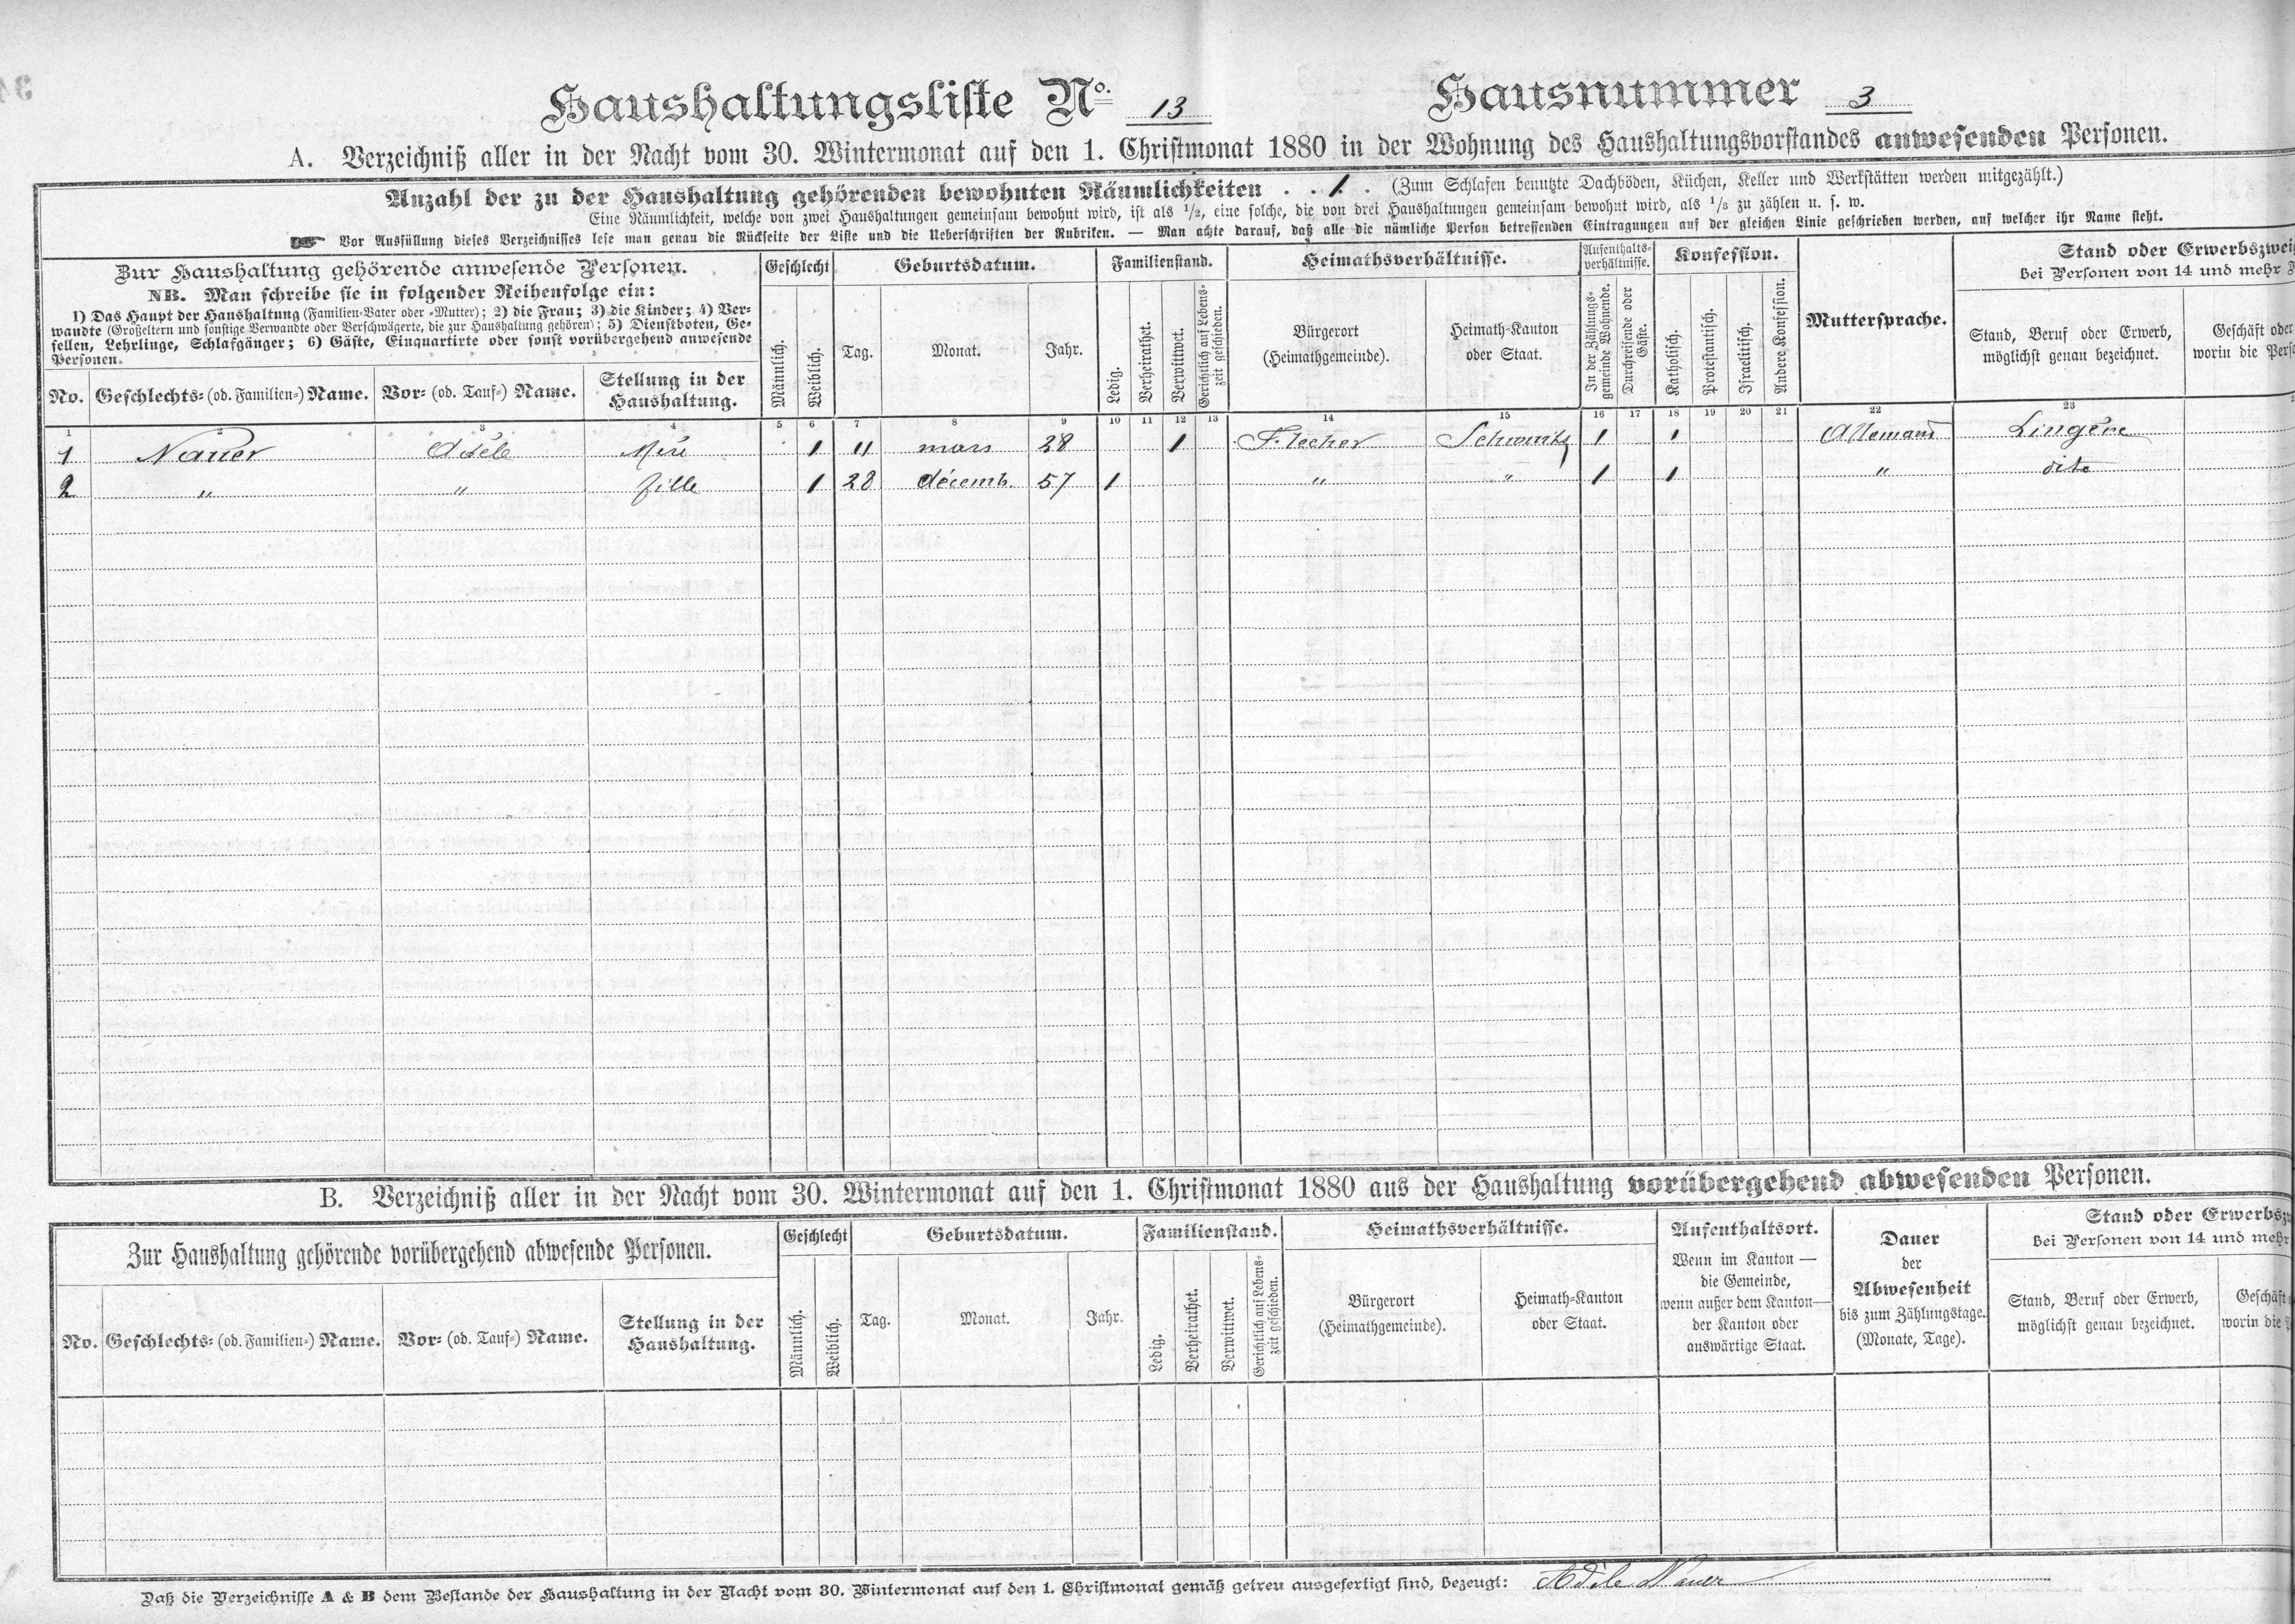 Haushaltungsliste No. 13 Hausnummer 3
A. Verzeichniß aller in der Nacht vom 30. Wintermonat auf den 1. Christmonat 1880 in der Wohnung des Haushaltungsvorstandes anwesenden Personen.
Anzahl der zu der Haushaltung gehörenden bewohnten Räumlichkeiten . . 1 . (Zum Schlafen benutzte Dachböden, Küchen, Keller und Werkstätten werden mitgezählt.)
Eine Räumlichkeit, welche von zwei Haushaltungen gemeinsam bewohnt wird, ist als 1/2, eine solche, die von drei Haushaltungen gemeinsam bewohnt wird, als 1/3 zu zählen u. s. w.
Vor Ausfüllung dieses Verzeichnisses lese man genau die Rückseite der Liste und die Ueberschriften der Rubriken. — Man achte darauf, daß alle die nämliche Person betreffenden Eintragungen auf der gleichen Linie geschrieben werden, auf welcher ihr Name steht.
Zur Haushaltung gehörende anwesende Personen.
NB. Man schreibe sie in folgender Reihenfolge ein:
1) Das Haupt der Haushaltung (Familien-Vater oder -Mutter); 2) die Frau; 3) die Kinder; 4) Ver-
wandte (Großeltern und sonstige Verwandte oder Verschwägerte, die zur Haushaltung gehören); 5) Dienstboten, Ge-
sellen, Lehrlinge, Schlafgänger; 6) Gäste, Einquartirte oder sonst vorübergehend anwesende
Personen.
No. Geschlechts- (od. Familien-) Name. Vor- (od. Tauf-) Name. Stellung in der
Haushaltung.
Geschlecht
Männlich. Weiblich.
Geburtsdatum.
Tag. Monat. Jahr.
Familienstand.
Ledig. Verheirathet. Verwittwet. Gerichtlich auf Lebens-
zeit geschieden.
Heimathsverhältnisse.
Bürgerort
(Heimathgemeinde).
Heimath-Kanton
oder Staat.
Aufenthalts-
verhältnisse.
In der Zählungs-
gemeinde Wohnende.
Durchreisende oder
Gäste.
Konfession.
Katholisch. Protestantisch. Israelitisch. Andere Konfession.
Muttersprache.
Stand oder Erwerbszwei
bei Personen von 14 und mehr
Stand, Beruf oder Erwerb,
möglichst genau bezeichnet.
Geschäft oder
worin die Pers
1 2 3 4 5 6 7 8 9 10 11 12 13 14 15 16 17 18 19 20 21 22 23
1 Nauer Adèle Mère 1 11 mars 28 1 Schwitz 1 1 Allemand Lingère
2 " " fille 1 28 décemb. 57 1 " " 1 1 " dite
B. Verzeichniß aller in der Nacht vom 30. Wintermonat auf den 1. Christmonat 1880 aus der Haushaltung vorübergehend abwesenden Personen.
Zur Haushaltung gehörende vorübergehend abwesende Personen.
No. Geschlechts- (od. Familien-) Name. Vor- (od. Tauf-) Name. Stellung in der
Haushaltung.
Geschlecht
Männlich. Weiblich.
Geburtsdatum.
Tag. Monat. Jahr.
Familienstand.
Ledig. Verheirathet. Verwittwet. Gerichtlich auf Lebens-
zeit geschieden.
Heimathsverhältnisse.
Bürgerort
(Heimathgemeinde).
Heimath-Kanton
oder Staat.
Aufenthaltsort.
Wenn im Kanton —
die Gemeinde,
wenn außer dem Kanton—
der Kanton oder
auswärtige Staat.
Dauer
der
Abwesenheit
bis zum Zählungstage.
(Monate, Tage).
Stand oder Erwerbsz
bei Personen von 14 und mehr
Stand, Beruf oder Erwerb,
möglichst genau bezeichnet.
Geschäft
worin die
Daß die Verzeichnisse A & B dem Bestande der Haushaltung in der Nacht vom 30. Wintermonat auf den 1. Christmonat gemäß getreu ausgefertigt sind, bezeugt: Adèle Nauer